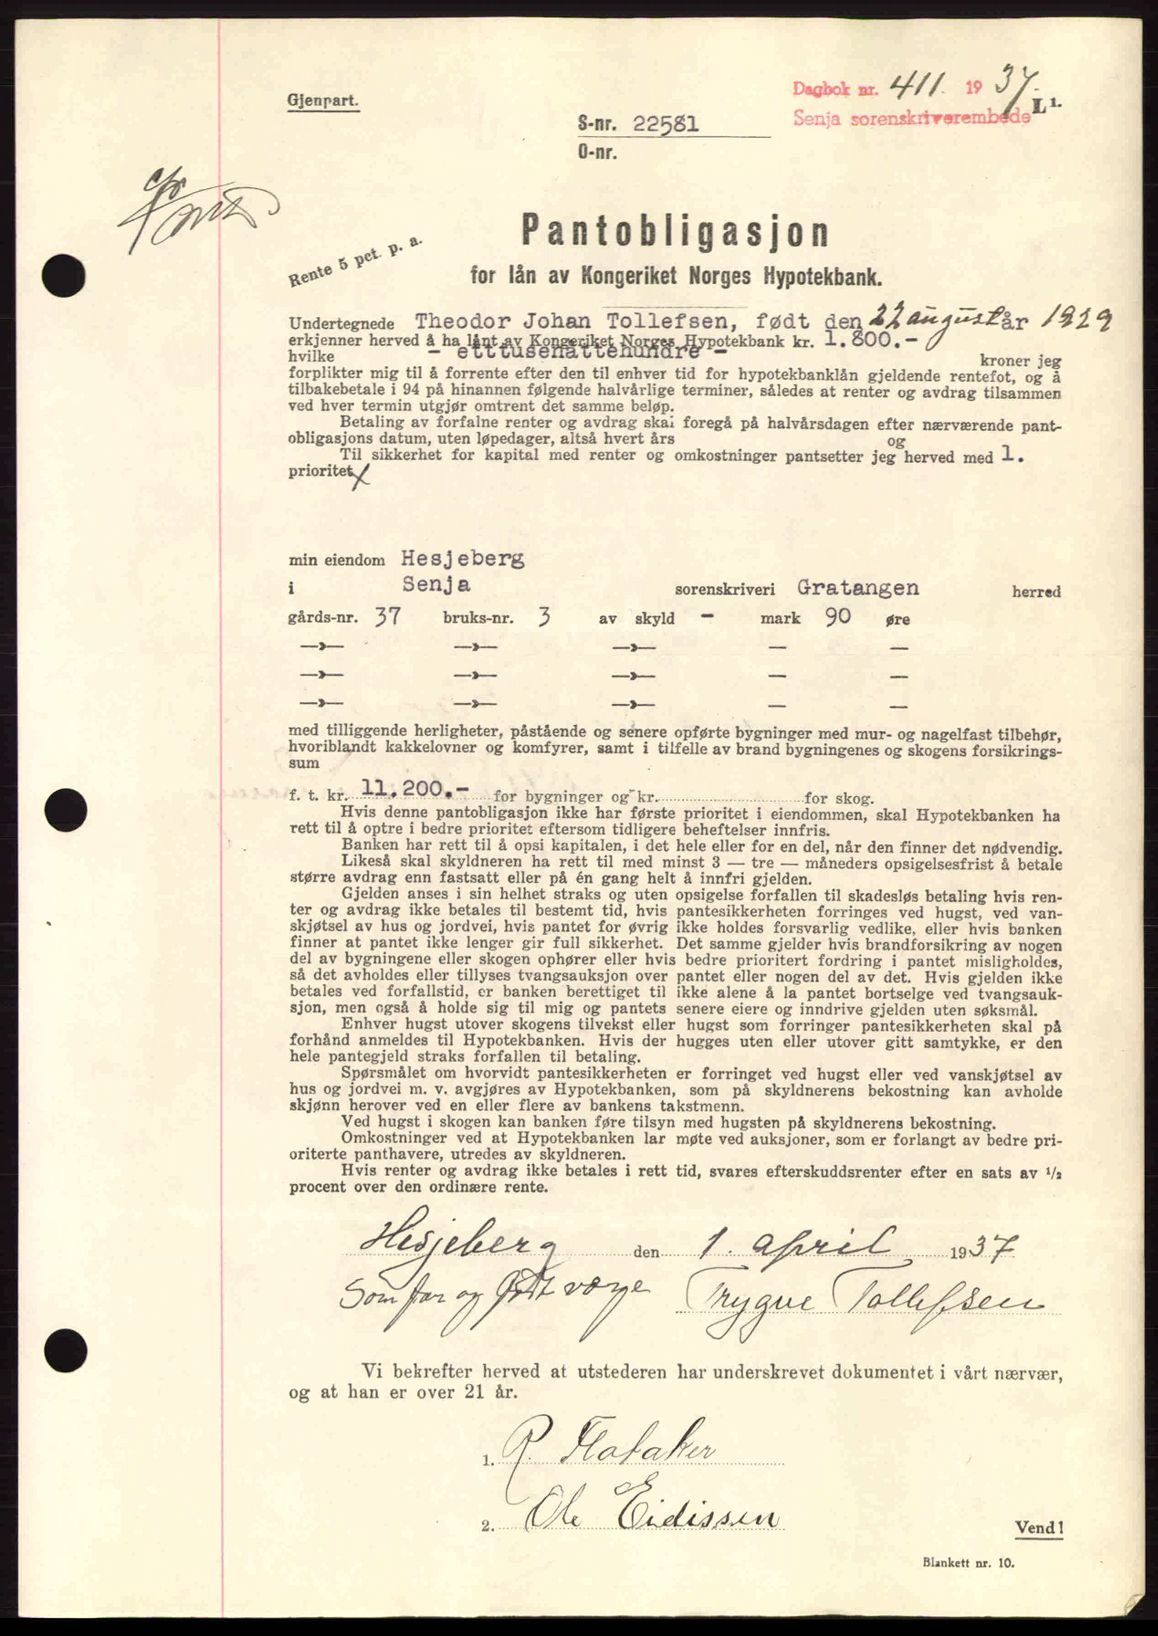 Gjenpart.
Dagbok nr. 411. 1937.
Senja sorenskriverembede
L 1.
S-nr. 22581
O-nr.
Pantobligasjon
for lån av Kongeriket Norges Hypotekbank.
Rente 5 pct. p. a.
Undertegnede Theodor Johan Tollefsen, født den 22 august år 1929
erkjenner herved å ha lånt av Kongeriket Norges Hypotekbank kr. 1.800.-
hvilke - ettusenåttehundre - kroner jeg
forplikter mig til å forrente efter den til enhver tid for hypotekbanklån gjeldende rentefot, og å
tilbakebetale i 94 på hinannen følgende halvårlige terminer, således at renter og avdrag tilsammen
ved hver termin utgjør omtrent det samme beløp.
Betaling av forfalne renter og avdrag skal foregå på halvårsdagen efter nærværende pant-
obligasjons datum, uten løpedager, altså hvert års og
Til sikkerhet for kapital med renter og omkostninger pantsetter jeg herved med 1.
prioritet
min eiendom Hesjeberg
i Senja sorenskriveri Gratangen herred
gårds-nr. 37 bruks-nr. 3 av skyld - mark 90 øre
—»— —»— —»— — —
—»— —»— —»— — —
—»— —»— —»— — —
med tilliggende herligheter, påstående og senere opførte bygninger med mur- og nagelfast tilbehør,
hvoriblandt kakkelovner og komfyrer, samt i tilfelle av brand bygningenes og skogens forsikrings-
sum
f. t. kr. 11.200.- for bygninger og kr. for skog.
Hvis denne pantobligasjon ikke har første prioritet i eiendommen, skal Hypotekbanken ha
rett til å optre i bedre prioritet eftersom tidligere beheftelser innfris.
Banken har rett til å opsi kapitalen, i det hele eller for en del, når den finner det nødvendig.
Likeså skal skyldneren ha rett til med minst 3 — tre — måneders opsigelsesfrist å betale
større avdrag enn fastsatt eller på én gang helt å innfri gjelden.
Gjelden anses i sin helhet straks og uten opsigelse forfallen til skadesløs betaling hvis ren-
ter og avdrag ikke betales til bestemt tid, hvis pantesikkerheten forringes ved hugst, ved van-
skjøtsel av hus og jordvei, hvis pantet for øvrig ikke holdes forsvarlig vedlike, eller hvis banken
finner at pantet ikke lenger gir full sikkerhet. Det samme gjelder hvis brandforsikring av nogen
del av bygningene eller skogen ophører eller hvis bedre prioritert fordring i pantet misligholdes,
så det avholdes eller tillyses tvangsauksjon over pantet eller nogen del av det. Hvis gjelden ikke
betales ved forfallstid, er banken berettiget til ikke alene å la pantet bortselge ved tvangsauk-
sjon, men også å holde sig til mig og pantets senere eiere og inndrive gjelden uten søksmål.
Enhver hugst utover skogens tilvekst eller hugst som forringer pantesikkerheten skal på
forhånd anmeldes til Hypotekbanken. Hvis der hugges uten eller utover gitt samtykke, er den
hele pantegjeld straks forfallen til betaling.
Spørsmålet om hvorvidt pantesikkerheten er forringet ved hugst eller ved vanskjøtsel av
hus og jordvei m. v. avgjøres av Hypotekbanken, som på skyldnerens bekostning kan avholde
skjønn herover ved en eller flere av bankens takstmenn.
Ved hugst i skogen kan banken føre tilsyn med hugsten på skyldnerens bekostning.
Omkostninger ved at Hypotekbanken lar møte ved auksjoner, som er forlangt av bedre pri-
oriterte panthavere, utredes av skyldneren.
Hvis renter og avdrag ikke betales i rett tid, svares efterskuddsrenter efter en sats av ½
procent over den ordinære rente.
Hesjeberg den 1. april 1937
Som far og født verge Trygve Tollefsen
Vi bekrefter herved at utstederen har underskrevet dokumentet i vårt nærvær,
og at han er over 21 år.
1. R. Flataker
2. Ole Eidissen
Vend!
Blankett nr. 10.